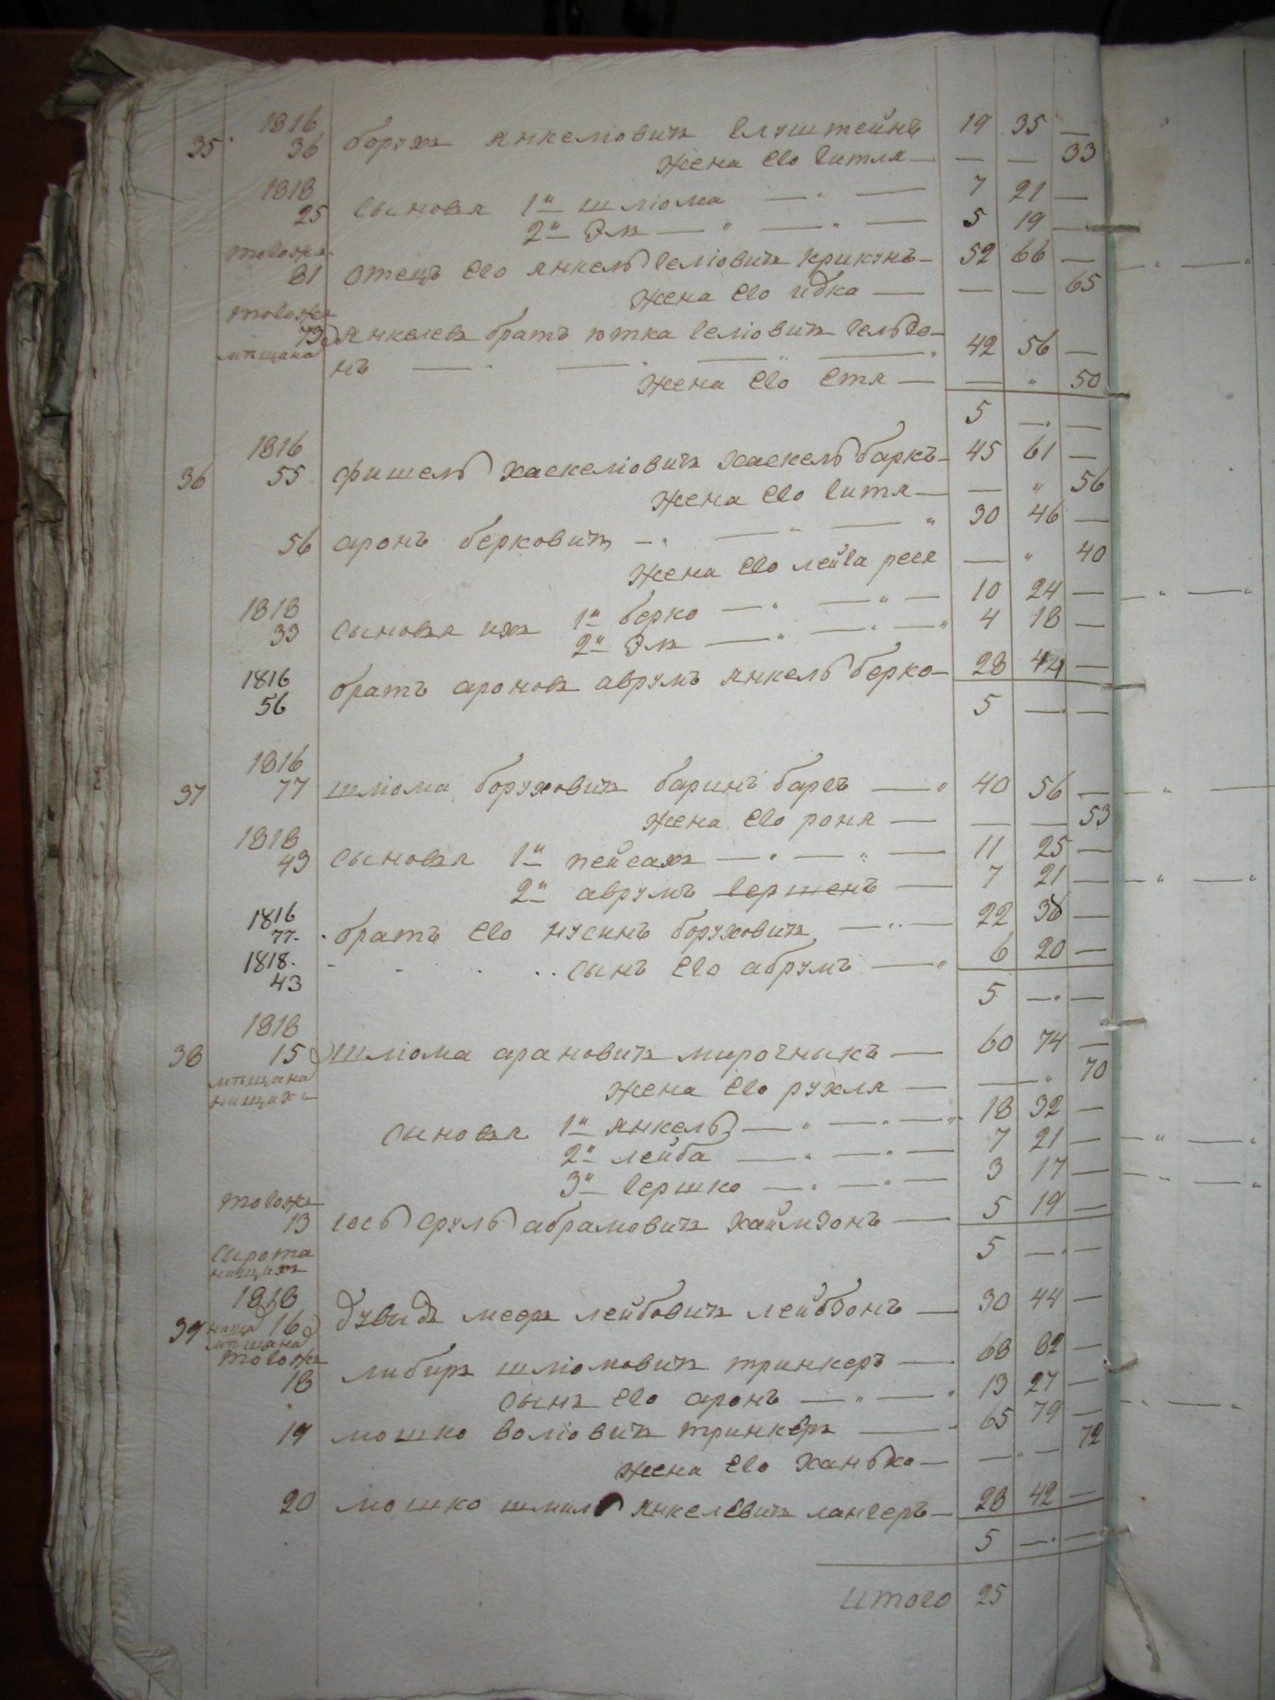 1816
35 36 борухъ янкелiовичъ глуштейнъ 19 35 —
жена его гитля — — — 33
1818
25 сыновья 1й шлiома — 7 21 —
2й Элъ — 5 19 —
тогожъ
81 отецъ его янкель гелiовичъ крикунъ — 52 66 —
жена его идка — — — 65
тогожъ
73 янкелевъ братъ ютка гелiовичъ гельзо-
мѣщана
нъ — 42 56 —
жена его етя — — 50
5 — —
1816
36 55 фишель хаскелiовичъ хаскельбаркъ — 45 61 —
жена его гитя — — 56
56 аронъ берковичъ — 30 46 —
жена его лейга реея — 40
1818
33 сыновья ихъ 1й берко — 10 24 —
2й Элъ — 4 18 —
1816
56 братъ ароновъ аврумъ янкель берко — 28 44 —
5 — —
1816
37 77 шлiома боруховичъ баринъ баргъ — 40 56 —
жена его роня — — — 53
1818
43 сыновья 1й пейсахъ — 11 25 —
2й аврумъ гершенъ — 7 21 —
1816
77 братъ его нусинъ боруховичъ — 22 38 —
1818
43 сынъ его абрумъ — 6 20 —
5 — —
1818
38 15 шлiома арановичъ мирочныкъ — 60 74 —
мѣщана
нищихъ
жена его рухля — — 70
сыновья 1й янкель — 18 32 —
2й лейба — 7 21 —
3й гершко — 3 17 —
тогожъ
13 iось сруль абрамовичъ хаймзонъ — 5 19 —
5 — —
сырота
нищихъ
1818
39 16 дувыдъ мееръ лейбовичъ лейбзонъ — 30 44 —
мѣщана
тогожъ
18 либиръ шлiомовичъ тринкеръ — 68 82 —
сынъ его аронъ — 13 27 —
19 мошко волiовичъ тринкеръ — 65 79 —
жена его ханька — — — 72
20 мошко шмиль янкелевичъ лангеръ — 28 42 —
5 — —
Итого 25